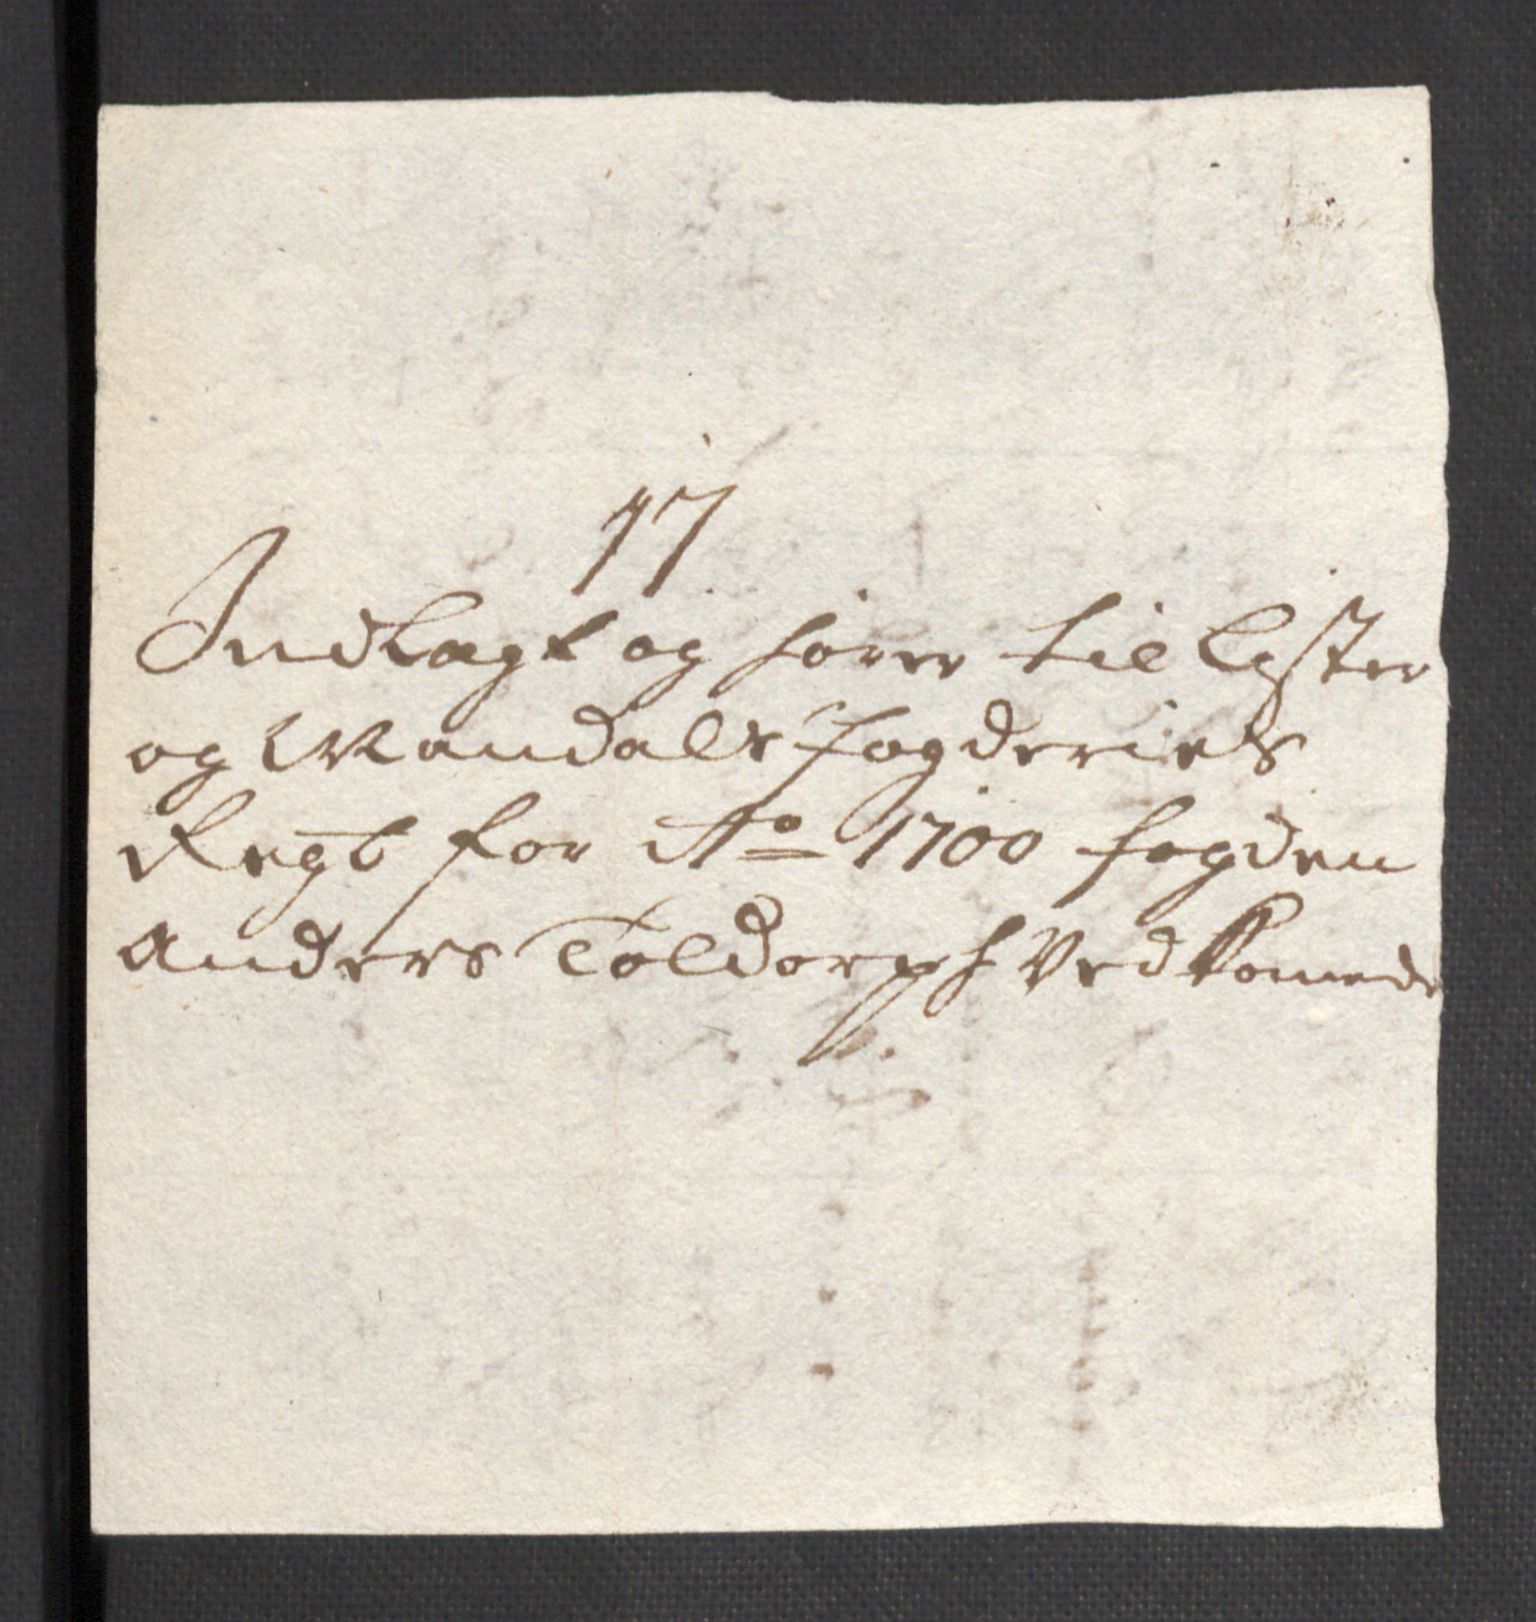 17
Indlagt og hører til Lyster
og Mandals fogderiets
Regb for Ao 1700 fogden
Anders Toldorph Vedkomede